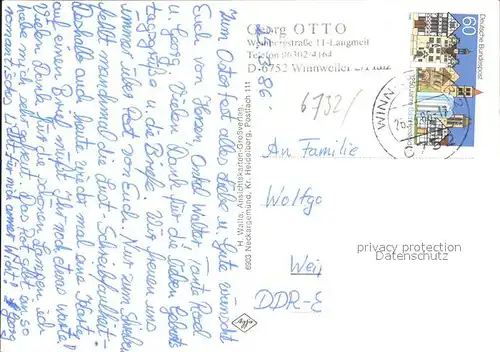 Georg OTTO
Wombergstraße 11-Langmeil
Telefon 06302/4164
D-6752 Winnweiler
86.
Zum Osterfest alles Liebe u. Gute wünscht
Euch von Herzen Onkel Walter, Tante Rosel
u. Georg. Vielen Dank für die lieben Geburts
tagsgrüße u. die Wir freuen uns
immer über Post von Euch. Nur zum Schreiben
fehlt manchmal die Lust - Schreibfaulheit -
Deshalb auch heute erst mal eine Karte,
auf einen Brief müßt Ihr noch etwas warten!
Vielen Dank für die schönen Lampen ich
habe mich sehr gefreut. Das Rot gibt ein so
romantisches Licht für mich armer Wicht! Georg
H. Walla, Ansichtskarten-Großverlag,
6903 Neckargemünd, Kr. Heidelberg, Postfach 111
6732/
An Familie
Wolfgo
Weip
DDR-E
Deutsche Bundespost
60
WINN
privacy protection
watermark